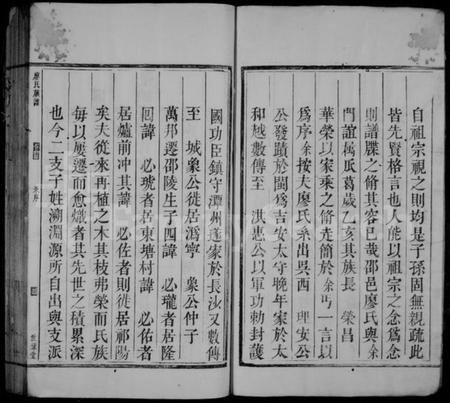 自祖宗視之則均是子孫固無親疏此
皆先賢格言也人能以祖宗之念為念
則譜牒之脩其容已哉邵邑廖氏與余
門誼屬瓜葛歲乙亥其族長 榮昌
華榮以家乘之脩先脩於余丐一言以
為序余按夫廖氏系出吳西 理安公
公發蹟於閩為吉安太守晚年家於太
和越數傳至 洪惠公以軍功勅封護
國功臣鎮守潭州遂家於長沙又數傳
至 城象公徙居溈寧 象公仲子
萬邦遷邵陵生子四諱 必瓏者居隆
回諱 必琥者居東塘村諱 必佑者
居爐前冲其諱 必佐者則徙居祁陽
矣夫從來再植之木其枝弗榮而氏族
每以屢遷而愈熾者其先世之積累深
也今二支子姓溯淵源所自出與支派
廖氏族譜
卷首
序
世綵堂